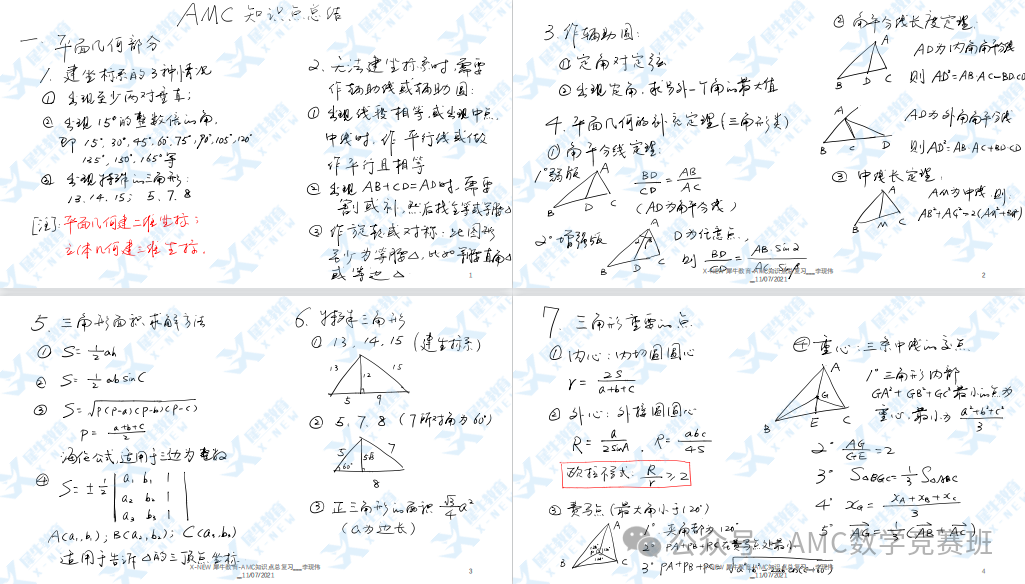 AMC 知识点总结
一 平面几何部分
1. 建坐标系的3种情况
① 出现至少两对垂直;
② 出现15°的整数倍的角.
即 15°, 30°, 45°, 60°, 75°, 90°, 105°, 120°
135°, 150°, 165° 等
③ 出现特殊的三角形:
13, 14, 15; 5, 7, 8
[注]: 平面几何建二维坐标;
立体几何建三维坐标.
2. 无法建坐标系时,需要
作辅助线或辅助圆:
① 出现线段相等,或出现中点.
中线时,作平行线或做
作平行且相等
② 出现 AB+CD=AD时,需要
割或补,然后找全等或等腰△
③ 作旋转或对称: 此图形
至少为等腰△, 比如等腰直角△
或 等边 △
1
3. 作辅助圆:
① 定角对定弦
② 出现定角,求另外一个角的最大值
4. 平面几何的补充定理(三角形类)
① 角平分线定理:
1° 弱版
A
B D C
BD/CD = AB/AC
(AD为角平分线)
2° 增强版
A
B D C
D为任意点,
则 BD/CD = AB·sin2/AC·sin1
② 角平分线长度定理:
A
B D C
AD为内角角平分线
则 AD²=AB·AC-BD·CD
A
B C D
AD为外角角平分线
则AD²=-AB·AC+BD·CD
③ 中线长定理:
A
B M C
AM为中线,则:
AB²+AC²=2(AM²+BM²)
X-NEW 犀牛教育-AMC知识点总复习__李现伟
_11/07/2021
2
5. 三角形面积求解方法
① S= 1/2 ah
② S= 1/2 ab sinC
③ S=√P(P-a)(P-b)(P-c)
P= a+b+c/2
海伦公式,适用于三边为整数
④ S=± 1/2 | a₁ b₁ 1 |
a₂ b₂ 1
a₃ b₃ 1
A(a₁,b₁); B(a₂,b₂); C(a₃,b₃)
适用于告诉△的三顶点坐标
6. 特殊三角形
① 13, 14, 15 (建坐标系)
13 12 15
5 9
② 5, 7, 8 (7所对角为60°)
5 7
60°
8
③ 正三角形的面积 √3/4 a²
(a为边长)
X-NEW 犀牛教育-AMC知识点总复习__李现伟
_11/07/2021
3
7. 三角形重要的点.
① 内心: 内切圆圆心
r = 2S/a+b+c
② 外心: 外接圆圆心
R= a/2sinA , R= abc/4S
欧拉不等式: R/r ≥2
③ 费马点(最大角小于120°)
A
B C
1° 夹角都为120°
2° PA+PB+PC在费马点处最小
3° PA+PB+PC=
④ 重心: 三条中线的交点.
A
G
B E C
1° 三角形内部
GA²+GB²+GC²最小的点为
重心,最小为 a²+b²+c²/3
2° AG/GE=2
3° S△BGC= 1/3 S△ABC
4° xG= xA+xB+xC/3
5° AG= 1/3(AB+AC)
公众号 · AMC数学竞赛班
_11/07/2021
4